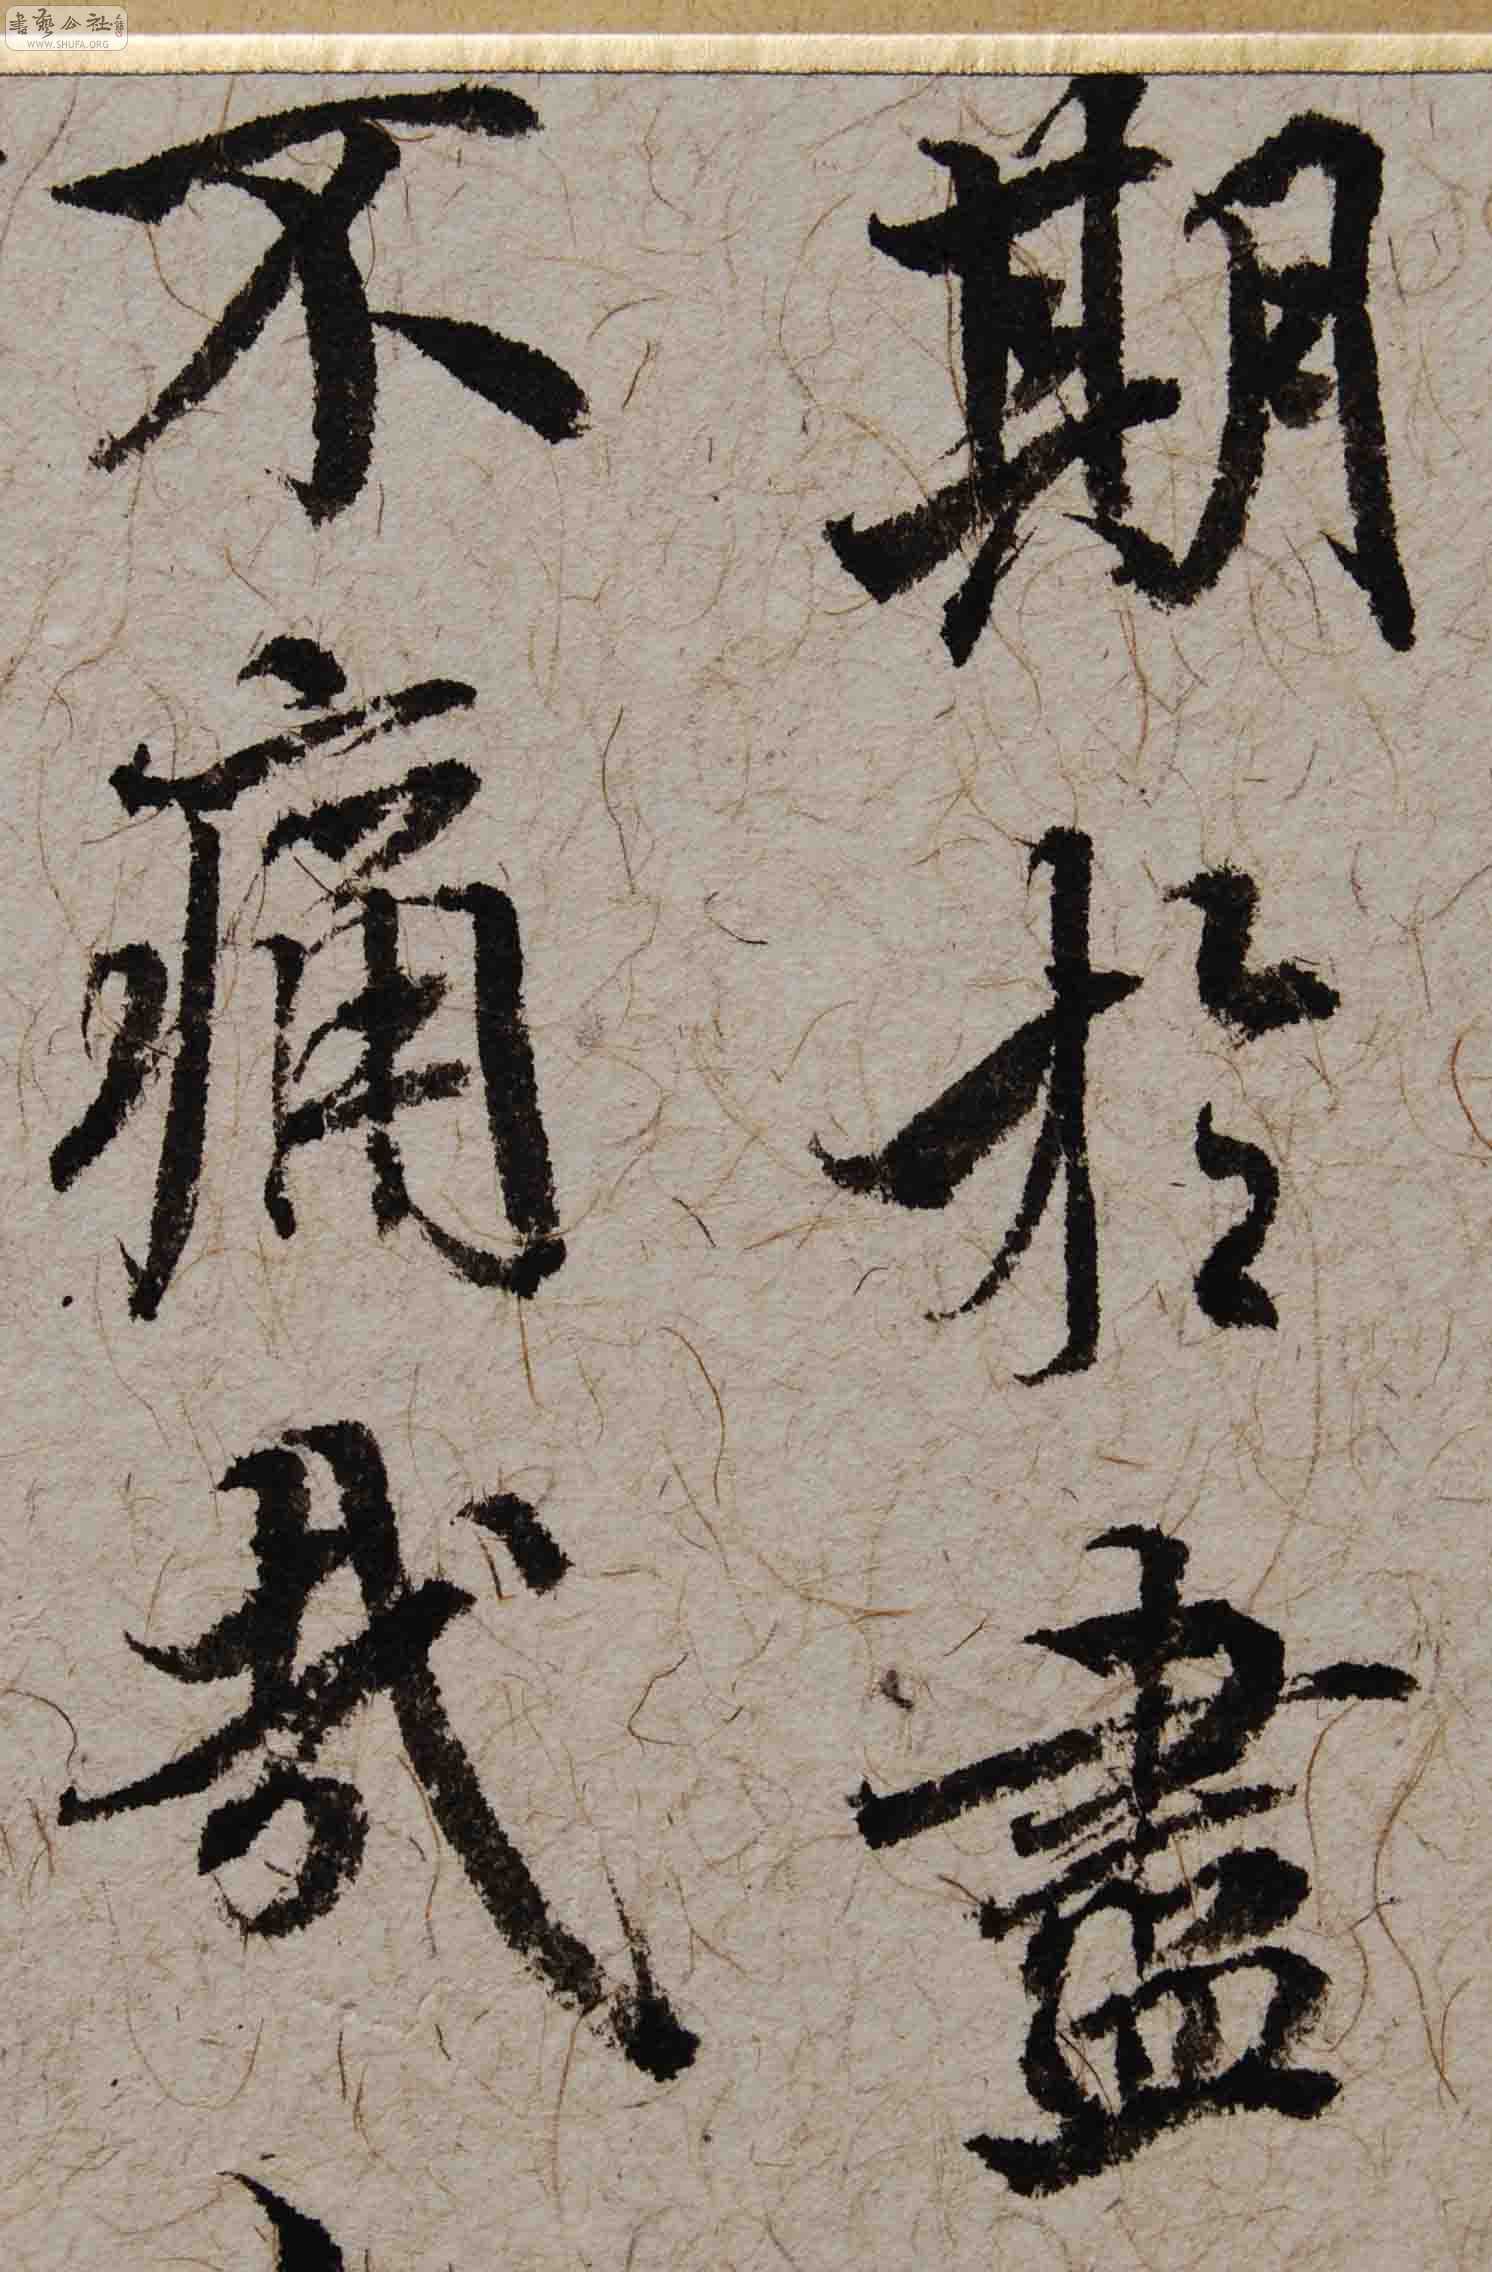 期於盡
不痛哉
書藝公社
WWW.SHUFA.ORG